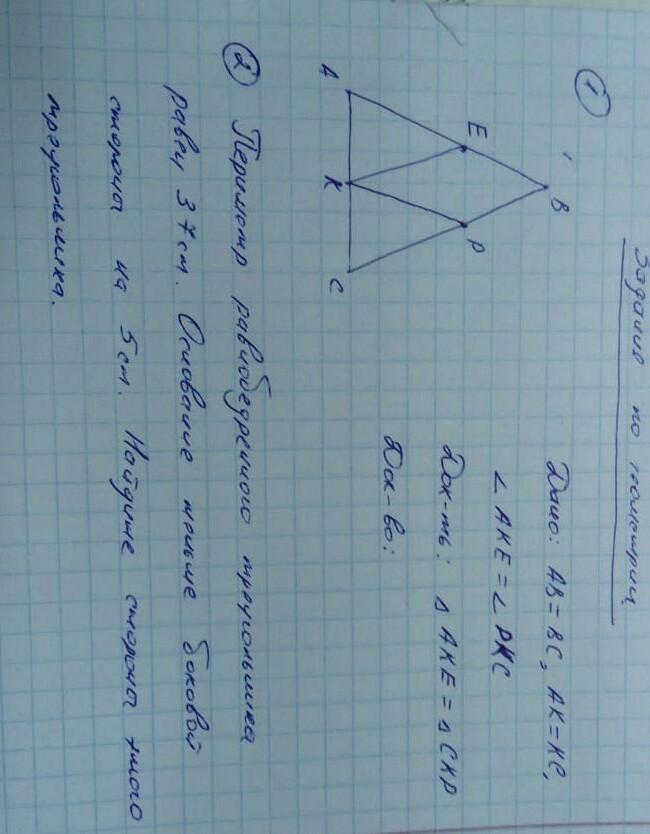 Задания по геометрии
1
Дано: AB = BC, AK = KC,
∠ AKE = ∠ PKC
Док-ть: Δ AKE = Δ CKP
Док-во:
B
E
P
A
K
C
2 Периметр равнобедренного треугольника
равен 37 см. Основание меньше боковой
стороны на 5 см. Найдите стороны этого
треугольника.